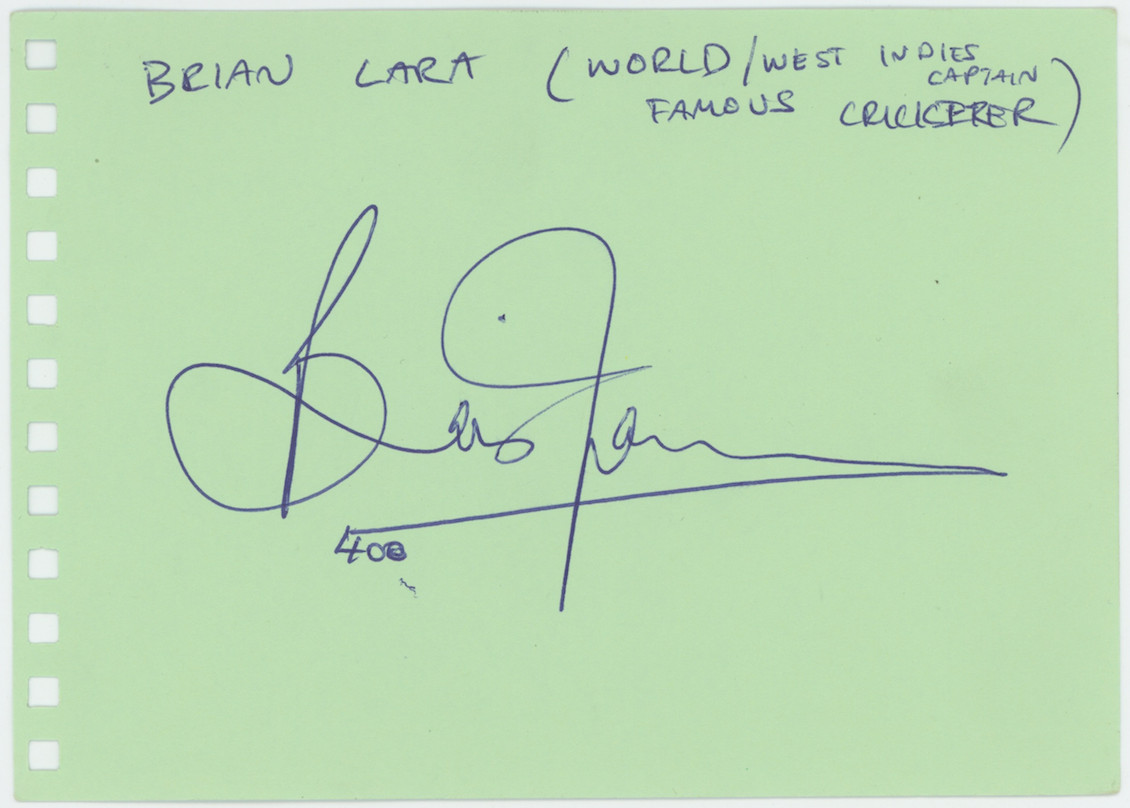 BRIAN LARA (WORLD/WEST INDIES
CAPTAIN
FAMOUS CRICKETER)
Brian Lara
400